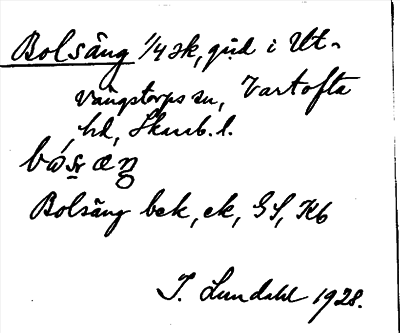 Bolsäng 1/4 sk, gård i Ut-
vängstorps sn, Vartofta
hd, Skarab. l.
Bolsäng bek, ek, GS, Kb
I. Lundahl 1928.